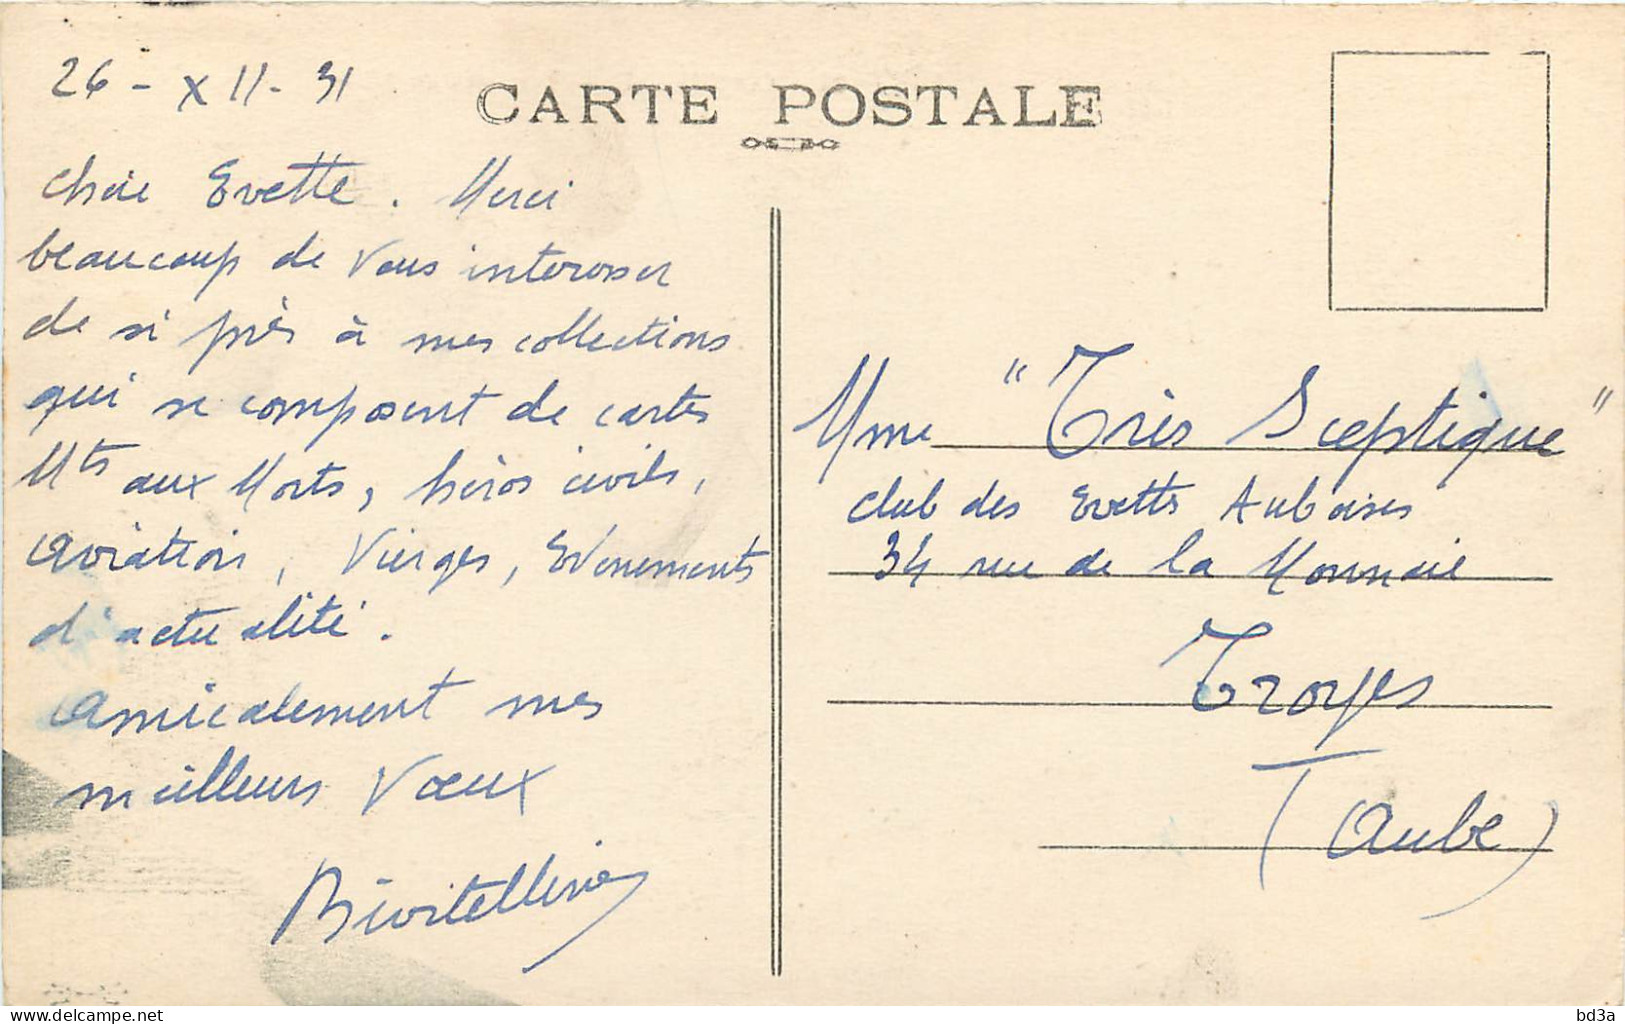 26 - XII - 31
CARTE POSTALE
Chère Evette. Merci
beaucoup de vous interesser
de si près à mes collections
qui se composent de cartes
Mts aux Morts, héros civils,
Aviation, Vierges, Evènements
d'actualité.
Amicalement mes
meilleurs Vœux
Mme "Très Sceptique"
Club des Evetts Auboises
34 rue de la Monnaie
Troyes
(Aube)
www.delcampe.net
bd3a